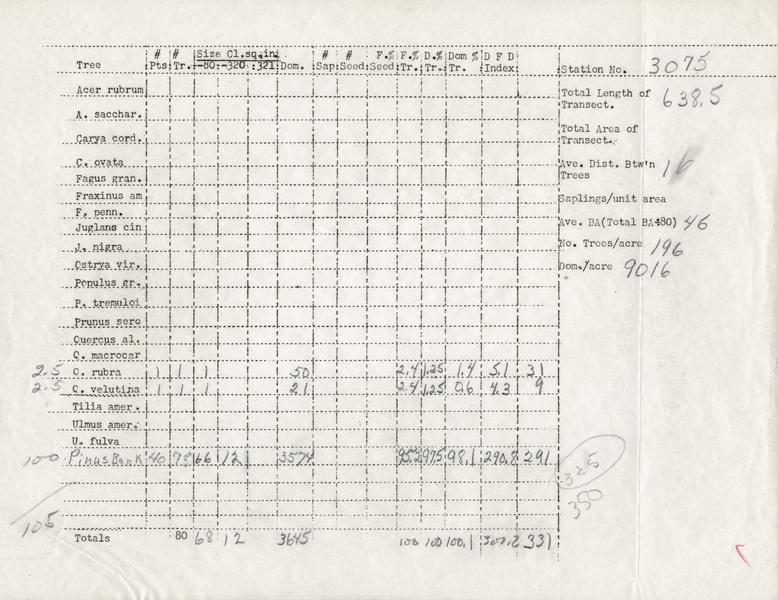 # # Size Cl.sq.in. # # F.% F.% D.% Dom % D F D
Tree Pts. Tr. -80 -320 :321 Dom. Sap. Seed. Seed. Tr. Tr. Tr. Index Station No. 3075
Acer rubrum Total Length of Transect. 638.5
A. sacchar.
Carya cord. Total Area of Transect.
C. ovata Ave. Dist. Btw'n Trees 16
Fagus gran.
Fraxinus am Saplings/unit area
F. penn.
Juglans cin Ave. BA(Total BA÷80) 46
J. nigra No. Trees/acre 196
Ostrya vir. Dom./acre 9016
Populus gr.
P. tremuloi
Prunus sero
Quercus al.
Q. macrocar
2.5 Q. rubra 1 1 1 50 2.4 1.25 1.4 5.1 31
2.5 Q. velutina 1 1 1 21 2.4 1.25 0.6 4.3 9
Tilia amer.
Ulmus amer.
U. fulva
100 Pinus Bank 40 78 66 12 3574 95.2 97.5 98.1 290.8 291
325
350
105
Totals 80 68 12 3645 100 100 100.1 331